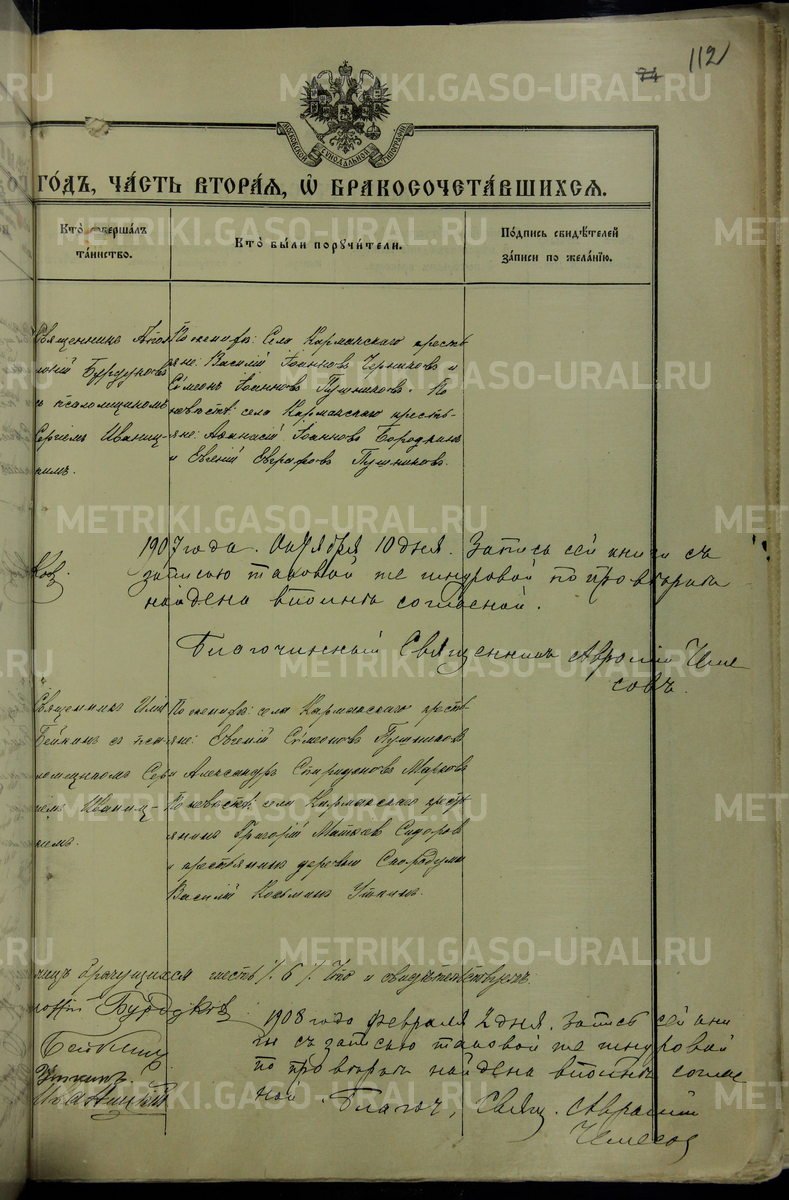 74 112
МОСКОВСКОЙ СѴНОДАЛЬНОЙ ТИПОГРАФІИ
ГО́ДЪ, ЧА́СТЬ ВТОРА́Я, Ѽ БРАКОСОЧЕТА́ВШИХСЯ.
Кто̀ соверша́лъ
та́инство.
Кто̀ бы́ли порꙋчи́тели.
По́дпись свидѣ́телей
за́писи по жела́нїю.
Священникъ
Бурдуковъ
съ псаломщикомъ
Сергіемъ Иваниц-
кимъ.
По женихѣ: Села Кармакскаго кресть
яне: Василій Іоанновъ Черниковъ и
Сѵмеонъ Іоанновъ Пушниковъ. По
невѣстѣ: села Кармакскаго кресть-
яне: Аѳанасій Іоанновъ Бородкинъ
и Евгеній Евграфовъ Пушниковъ.
1907 года. Октября 10 дня. Запись сей книги съ
записью таковой же шнуровой по провѣркѣ
найдена вполнѣ согласной.
Благочинный Священникъ Авраамій Чеме
совъ.
Священникъ
Бейкинъ съ пса-
ломщикомъ Сер
гіемъ Иваниц-
кимъ.
По женихѣ: села Кармакскаго кресть
яне: Евгеній Сѵмеоновъ Пушниковъ
и Александръ Спиридоновъ Марковъ
По невѣстѣ: села Кармакскаго кресть
янинъ Григорій Матѳеевъ Сидоровъ
и крестьянинъ деревни
Василій Козьминъ Уткинъ.
брачущихся шесть /. 6 /. Что и свидѣтельствуемъ.
Бурдуковъ
Бейкинъ
Иваницкій
1908 года февраля 2 дня. Запись сей кни
ги съ записью таковой же шнуровой
по провѣркѣ найдена вполнѣ соглас
ной. Благоч., Свящ. Авраамій
Чемесов
METRIKI.GASO-URAL.RU